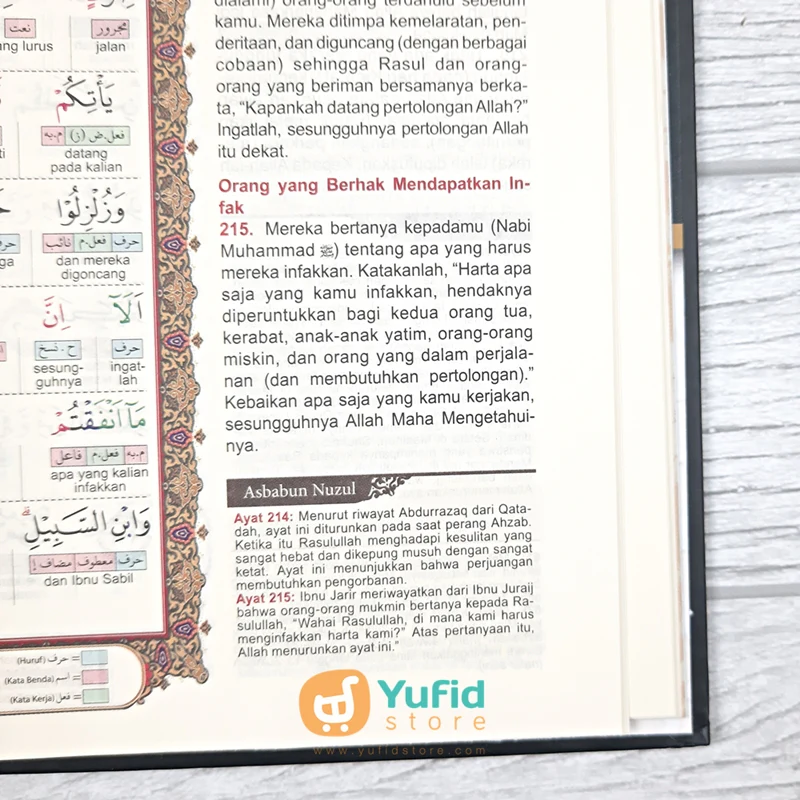 نعت
مجرور
ng lurus
jalan
يَأْتِكُمْ
فعل.ض (ز)
م.به
datang
pada kalian
وَزُلْزِلُوا
حرف
فعل.م
نائب
dan mereka
digoncang
اَلَآ
اِنَّ
حرف
ح. نسخ
ingat-
lah
sesung-
guhnya
مَآ اَنْفَقْتُمْ
م.به
فعل.م
فاعل
apa yang kalian
infakkan
وَابْنِ السَّبِيْلِ
حرف
معطوف
مضاف إ
dan Ibnu Sabil
(Huruf) حرف =
(Kata Benda) اسم =
(Kata Kerja) فعل =
dialami) orang-orang terdahulu sebelum
kamu. Mereka ditimpa kemelaratan, pen-
deritaan, dan diguncang (dengan berbagai
cobaan) sehingga Rasul dan orang-
orang yang beriman bersamanya berka-
ta, “Kapankah datang pertolongan Allah?”
Ingatlah, sesungguhnya pertolongan Allah
itu dekat.
Orang yang Berhak Mendapatkan In-
fak
215. Mereka bertanya kepadamu (Nabi
Muhammad ﷺ) tentang apa yang harus
mereka infakkan. Katakanlah, “Harta apa
saja yang kamu infakkan, hendaknya
diperuntukkan bagi kedua orang tua,
kerabat, anak-anak yatim, orang-orang
miskin, dan orang yang dalam perjala-
nan (dan membutuhkan pertolongan).”
Kebaikan apa saja yang kamu kerjakan,
sesungguhnya Allah Maha Mengetahui-
nya.
Asbabun Nuzul
Ayat 214: Menurut riwayat Abdurrazaq dari Qata-
dah, ayat ini diturunkan pada saat perang Ahzab.
Ketika itu Rasulullah menghadapi kesulitan yang
sangat hebat dan dikepung musuh dengan sangat
ketat. Ayat ini menunjukkan bahwa perjuangan
membutuhkan pengorbanan.
Ayat 215: Ibnu Jarir meriwayatkan dari Ibnu Juraij
bahwa orang-orang mukmin bertanya kepada Ra-
sulullah, “Wahai Rasulullah, di mana kami harus
menginfakkan harta kami?” Atas pertanyaan itu,
Allah menurunkan ayat ini.”
Yufid
store
www.yufidstore.com